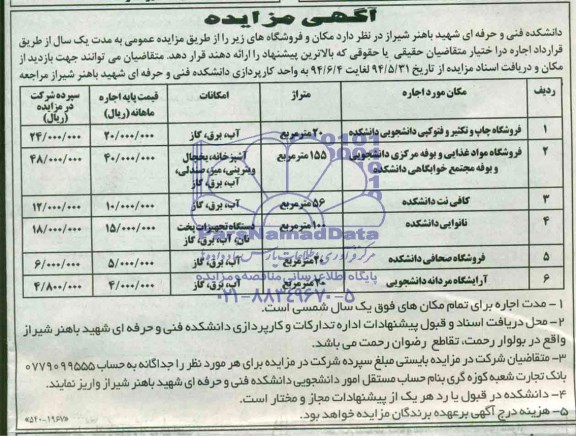 آگهی مزایده
دانشکده فنی و حرفه ای شهید باهنر شیراز در نظر دارد مکان و فروشگاه های زیر را از طریق مزایده عمومی به مدت یک سال از طریق
قرارداد اجاره در اختیار متقاضیان حقیقی یا حقوقی که بالاترین پیشنهاد را ارائه دهند قرار دهد. متقاضیان می توانند جهت بازدید از
مکان و دریافت اسناد مزایده از تاریخ ۹۴/۵/۳۱ لغایت ۹۴/۶/۴ به واحد کارپردازی دانشکده فنی و حرفه ای شهید باهنر شیراز مراجعه
ردیف مکان مورد اجاره متراژ امکانات قیمت پایه اجاره ماهانه (ریال) سپرده شرکت در مزایده (ریال)
۱ فروشگاه چاپ و تکثیر و فتوکپی دانشجویی دانشکده ۲۰ مترمربع آب، برق، گاز ۲۰/۰۰۰/۰۰۰ ۲۴/۰۰۰/۰۰۰
۲ فروشگاه مواد غذایی و بوفه مرکزی دانشجویی و بوفه مجتمع خوابگاهی دانشکده ۱۵۵ مترمربع آشپزخانه، یخچال ویترینی، میز، صندلی، آب، برق، گاز ۴۰/۰۰۰/۰۰۰ ۴۸/۰۰۰/۰۰۰
۳ کافی نت دانشکده ۵۶ مترمربع آب، برق، گاز ۱۰/۰۰۰/۰۰۰ ۱۲/۰۰۰/۰۰۰
۴ نانوایی دانشکده ۱۰۰ مترمربع دستگاه تجهیزات پخت نان، آب، برق، گاز ۱۵/۰۰۰/۰۰۰ ۱۸/۰۰۰/۰۰۰
۵ فروشگاه صحافی دانشکده ۲۰ مترمربع آب، برق، گاز ۵/۰۰۰/۰۰۰ ۶/۰۰۰/۰۰۰
۶ آرایشگاه مردانه دانشجویی ۲۰ مترمربع آب، برق، گاز ۴/۰۰۰/۰۰۰ ۴/۸۰۰/۰۰۰
ParsNamadData
پایگاه اطلاع رسانی مناقصه و مزایده
۰۲۱-۸۸۳۴۹۶۷۰-۵
۱- مدت اجاره برای تمام مکان های فوق یک سال شمسی است.
۲- محل دریافت اسناد و قبول پیشنهادات اداره تدارکات و کارپردازی دانشکده فنی و حرفه ای شهید باهنر شیراز
واقع در بولوار رحمت، تقاطع رضوان رحمت می باشد.
۳- متقاضیان شرکت در مزایده بایستی مبلغ سپرده شرکت در مزایده برای هر مورد نظر را جداگانه به حساب ۰۷۷۹۰۹۹۵۵۵
بانک تجارت شعبه کوزه گری بنام حساب مستقل امور دانشجویی دانشکده فنی و حرفه ای شهید باهنر شیراز واریز نمایند.
۴- دانشکده در قبول یا رد هر یک از پیشنهادات مجاز و مختار است.
۵- هزینه درج آگهی برعهده برندگان مزایده خواهد بود.
«۵۴۰-۱۹۶۷»